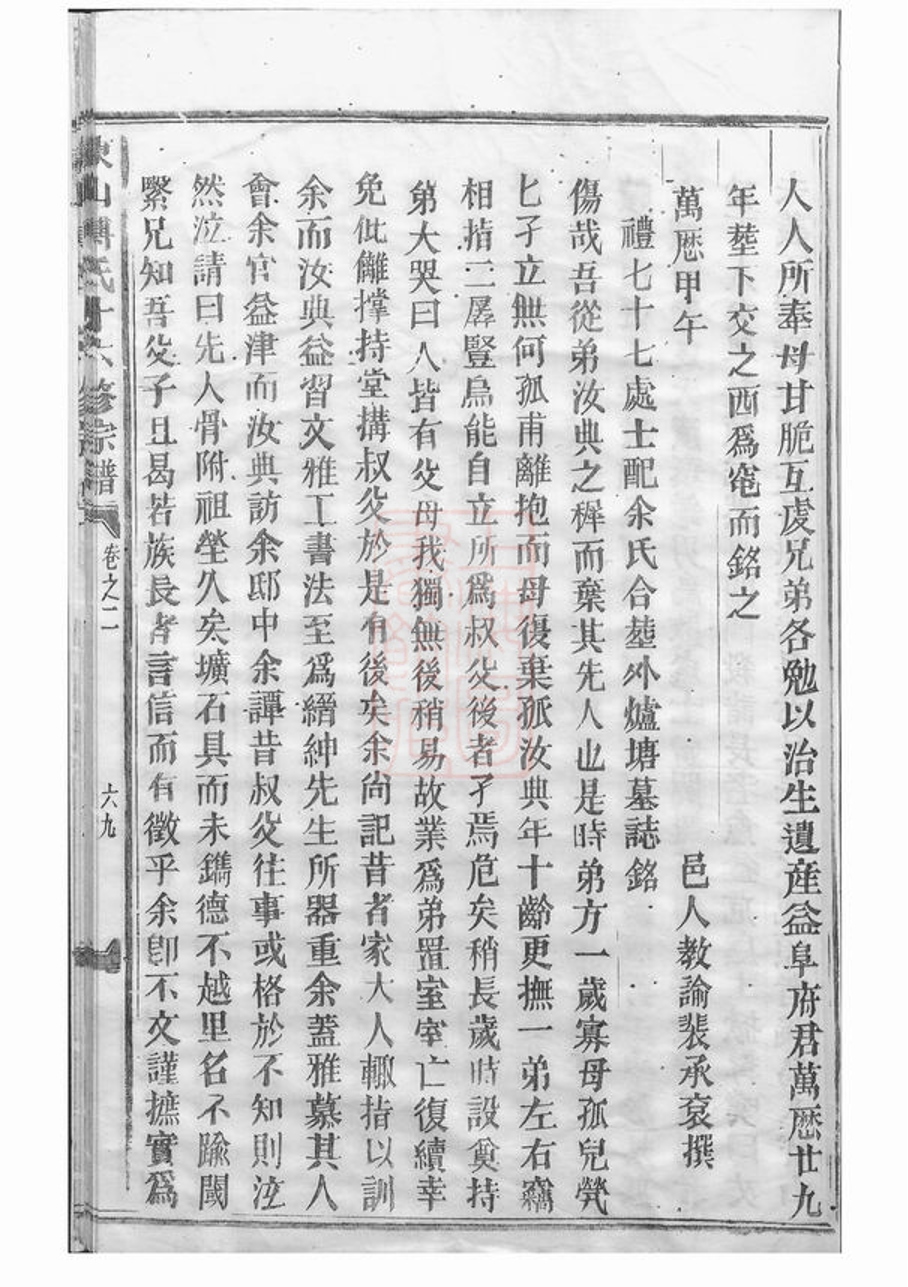 人人所奉母甘脆互處兄弟各勉以治生遺產益阜府君萬厯廿九
年塟下交之西爲窀而銘之
萬厯甲午
邑人教諭裴承袞撰
禮七十七處士配余氏合塟外爐塘墓誌銘
傷哉吾從弟汝典之穉而棄其先人也是時弟方一歲寡母孤兒煢
匕孑立無何孤甫離抱而母復棄孤汝典年十齡更撫一弟左右竊
相指二孱豎烏能自立所爲叔父後者孑焉危矣稍長歲時設奠持
弟大哭曰人皆有父母我獨無後稍易故業爲弟置室室亡復續幸
免仳離撐持堂搆叔父於是有後矣余尚記昔者家大人輙指以訓
余而汝典益習文雅工書法至爲縉紳先生所器重余蓋雅慕其人
會余官益津而汝典訪余邸中余譚昔叔父往事或格於不知則泣
然泣請曰先人骨附祖塋久矣壙石具而未鐫德不越里名不踰閾
繄兄知吾父子且曷若族長者言信而有徵乎余卽不文謹摭實爲
傅氏十六修宗譜
卷之二
六九